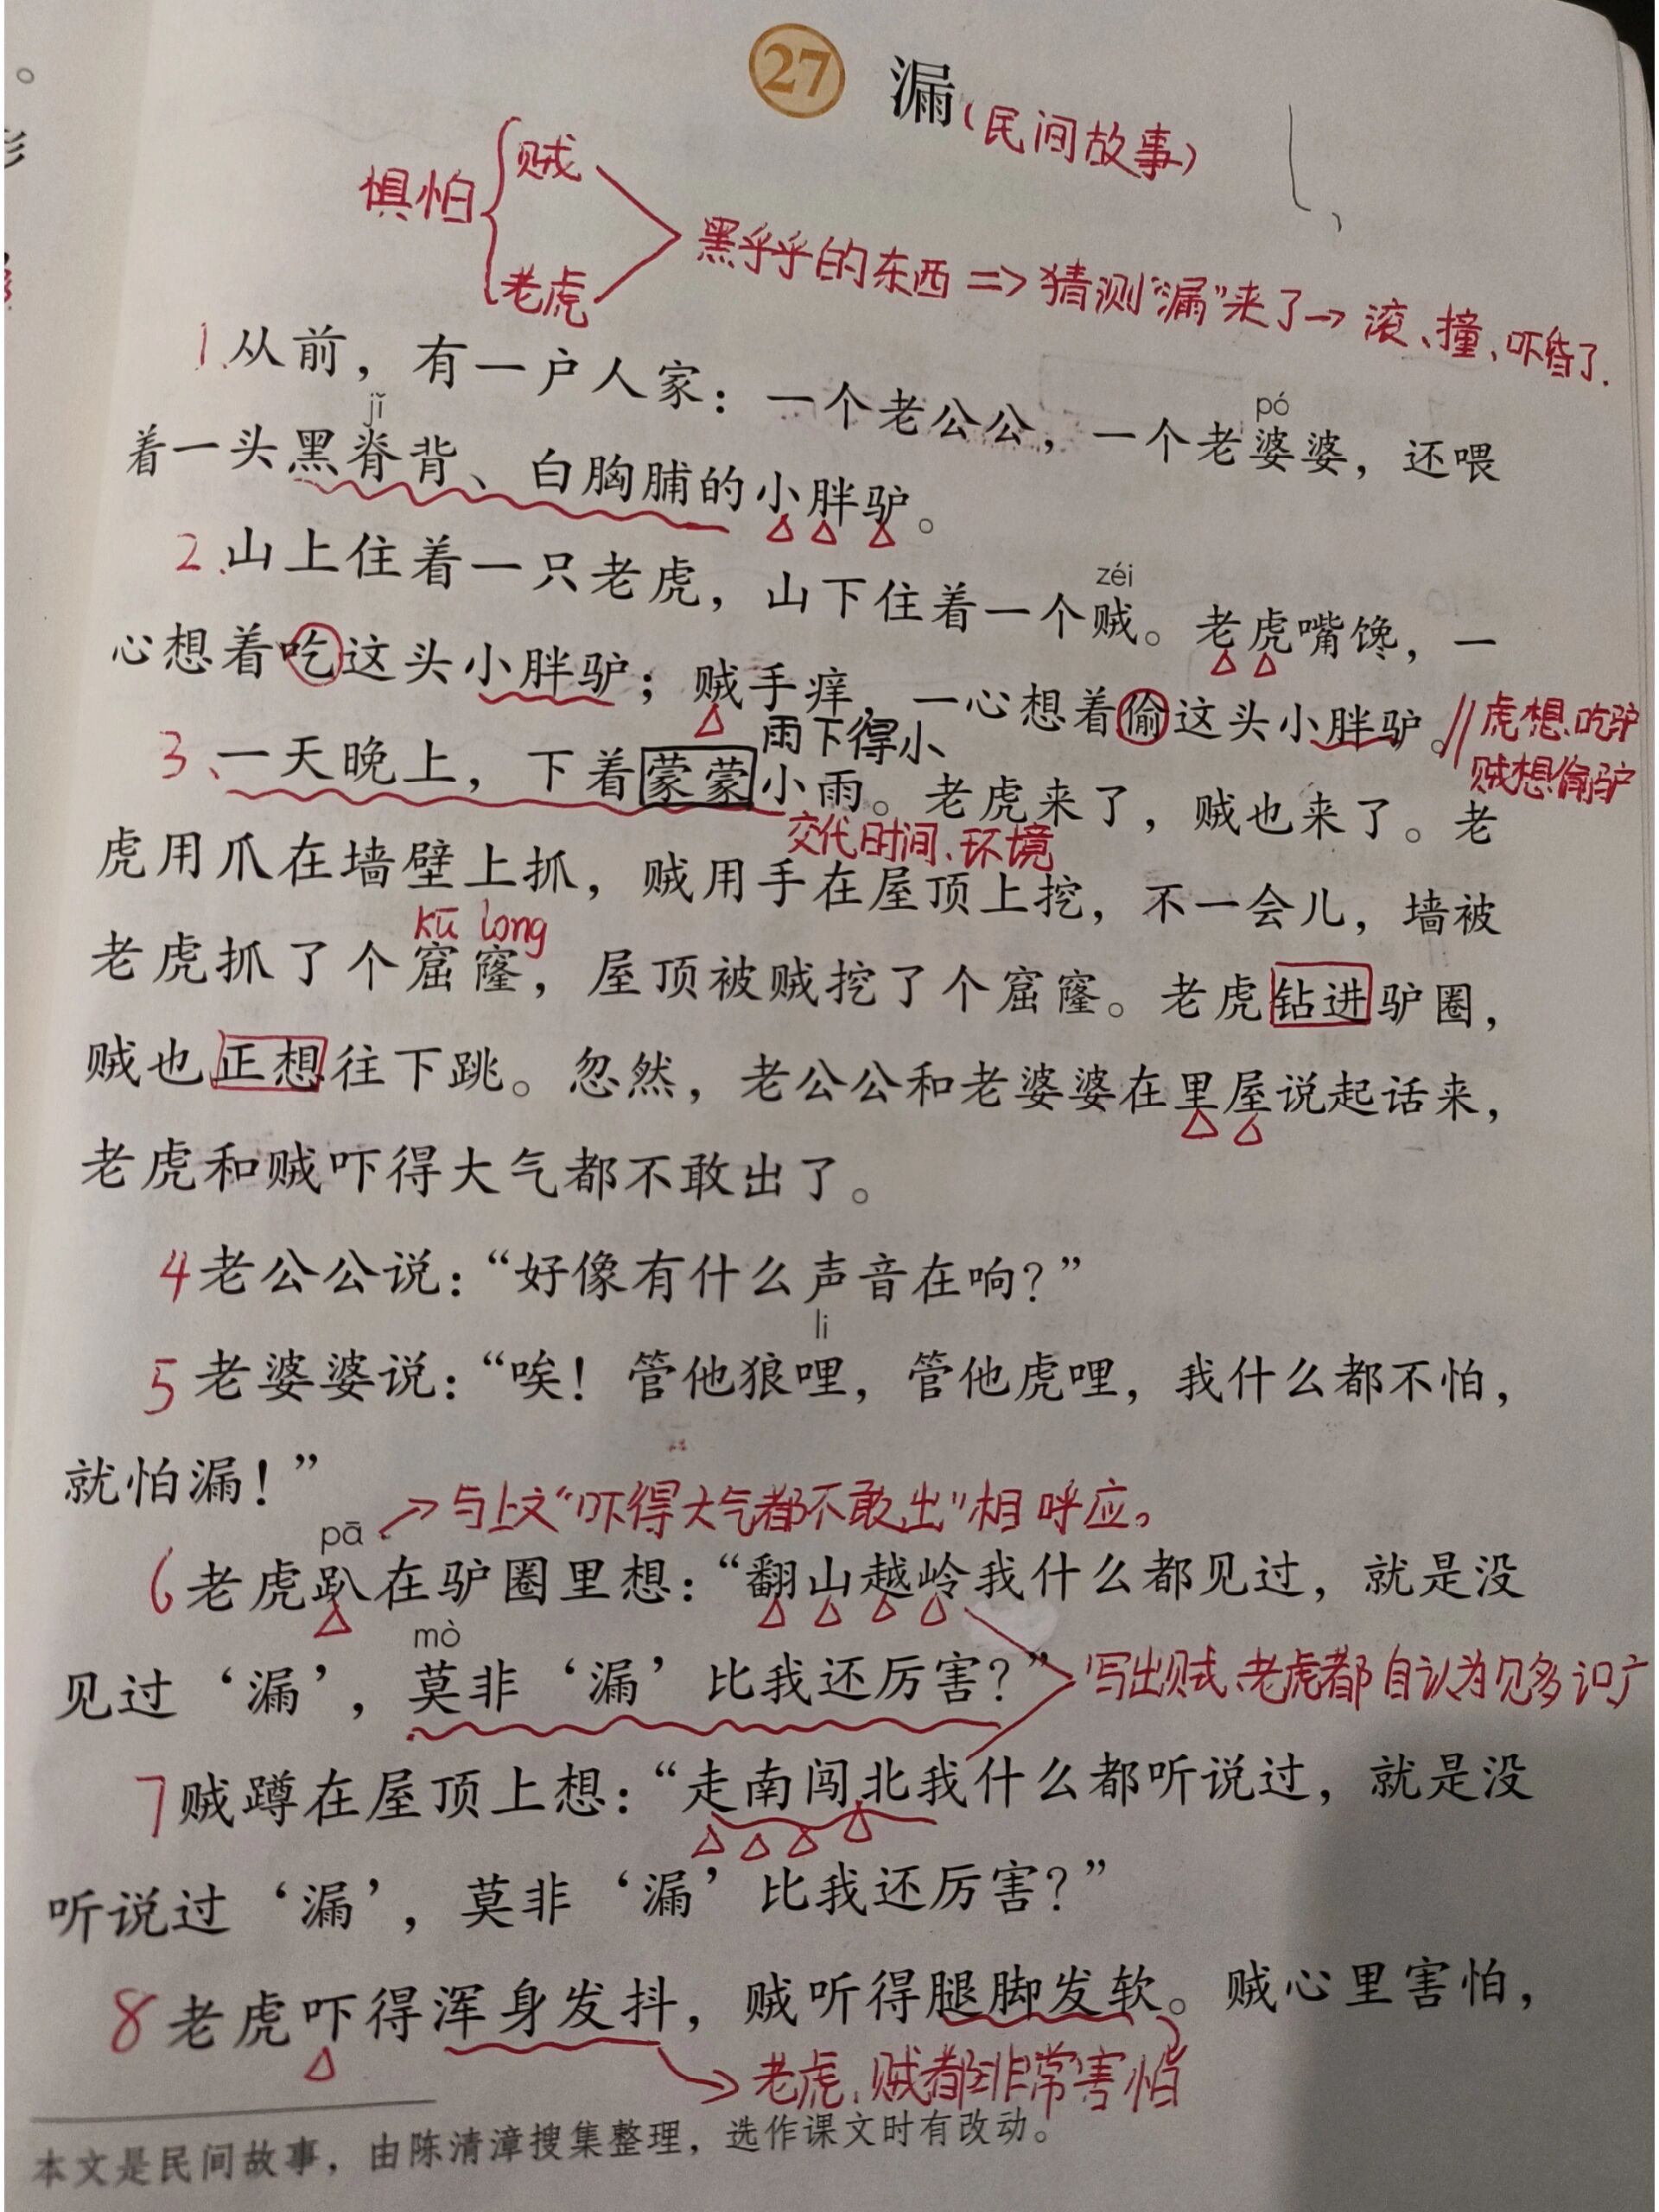 27 漏(民间故事)
惧怕 贼 老虎 黑乎乎的东西 => 猜测“漏”来了→ 滚、撞、吓昏了.
1.从前，有一户人家：一个老公公，一个老婆婆，还喂
jǐ pó
着一头黑脊背、白胸脯的小胖驴。
2.山上住着一只老虎，山下住着一个贼。老虎嘴馋，一
zéi
心想着吃这头小胖驴；贼手痒，一心想着偷这头小胖驴。
虎想吃驴
贼想偷驴
雨下得小
3、一天晚上，下着蒙蒙小雨。老虎来了，贼也来了。老
交代时间、环境
虎用爪在墙壁上抓，贼用手在屋顶上挖，不一会儿，墙被
kū long
老虎抓了个窟窿，屋顶被贼挖了个窟窿。老虎钻进驴圈，
贼也正想往下跳。忽然，老公公和老婆婆在里屋说起话来，
老虎和贼吓得大气都不敢出了。
4 老公公说：“好像有什么声音在响？”
li
5 老婆婆说：“唉！管他狼哩，管他虎哩，我什么都不怕，
就怕漏！”
与上文“吓得大气都不敢出”相呼应。
pā
6 老虎趴在驴圈里想：“翻山越岭我什么都见过，就是没
mò
见过‘漏’，莫非‘漏’比我还厉害？”
写出贼、老虎都自认为见多识广
7 贼蹲在屋顶上想：“走南闯北我什么都听说过，就是没
听说过‘漏’，莫非‘漏’比我还厉害？”
8 老虎吓得浑身发抖，贼听得腿脚发软。贼心里害怕，
老虎、贼都非常害怕
本文是民间故事，由陈清漳搜集整理，选作课文时有改动。